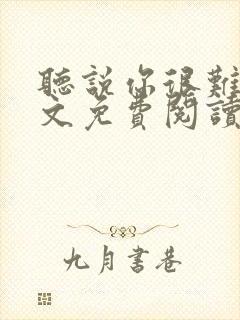 聽說你很難
文免費閱讀
九月書巷